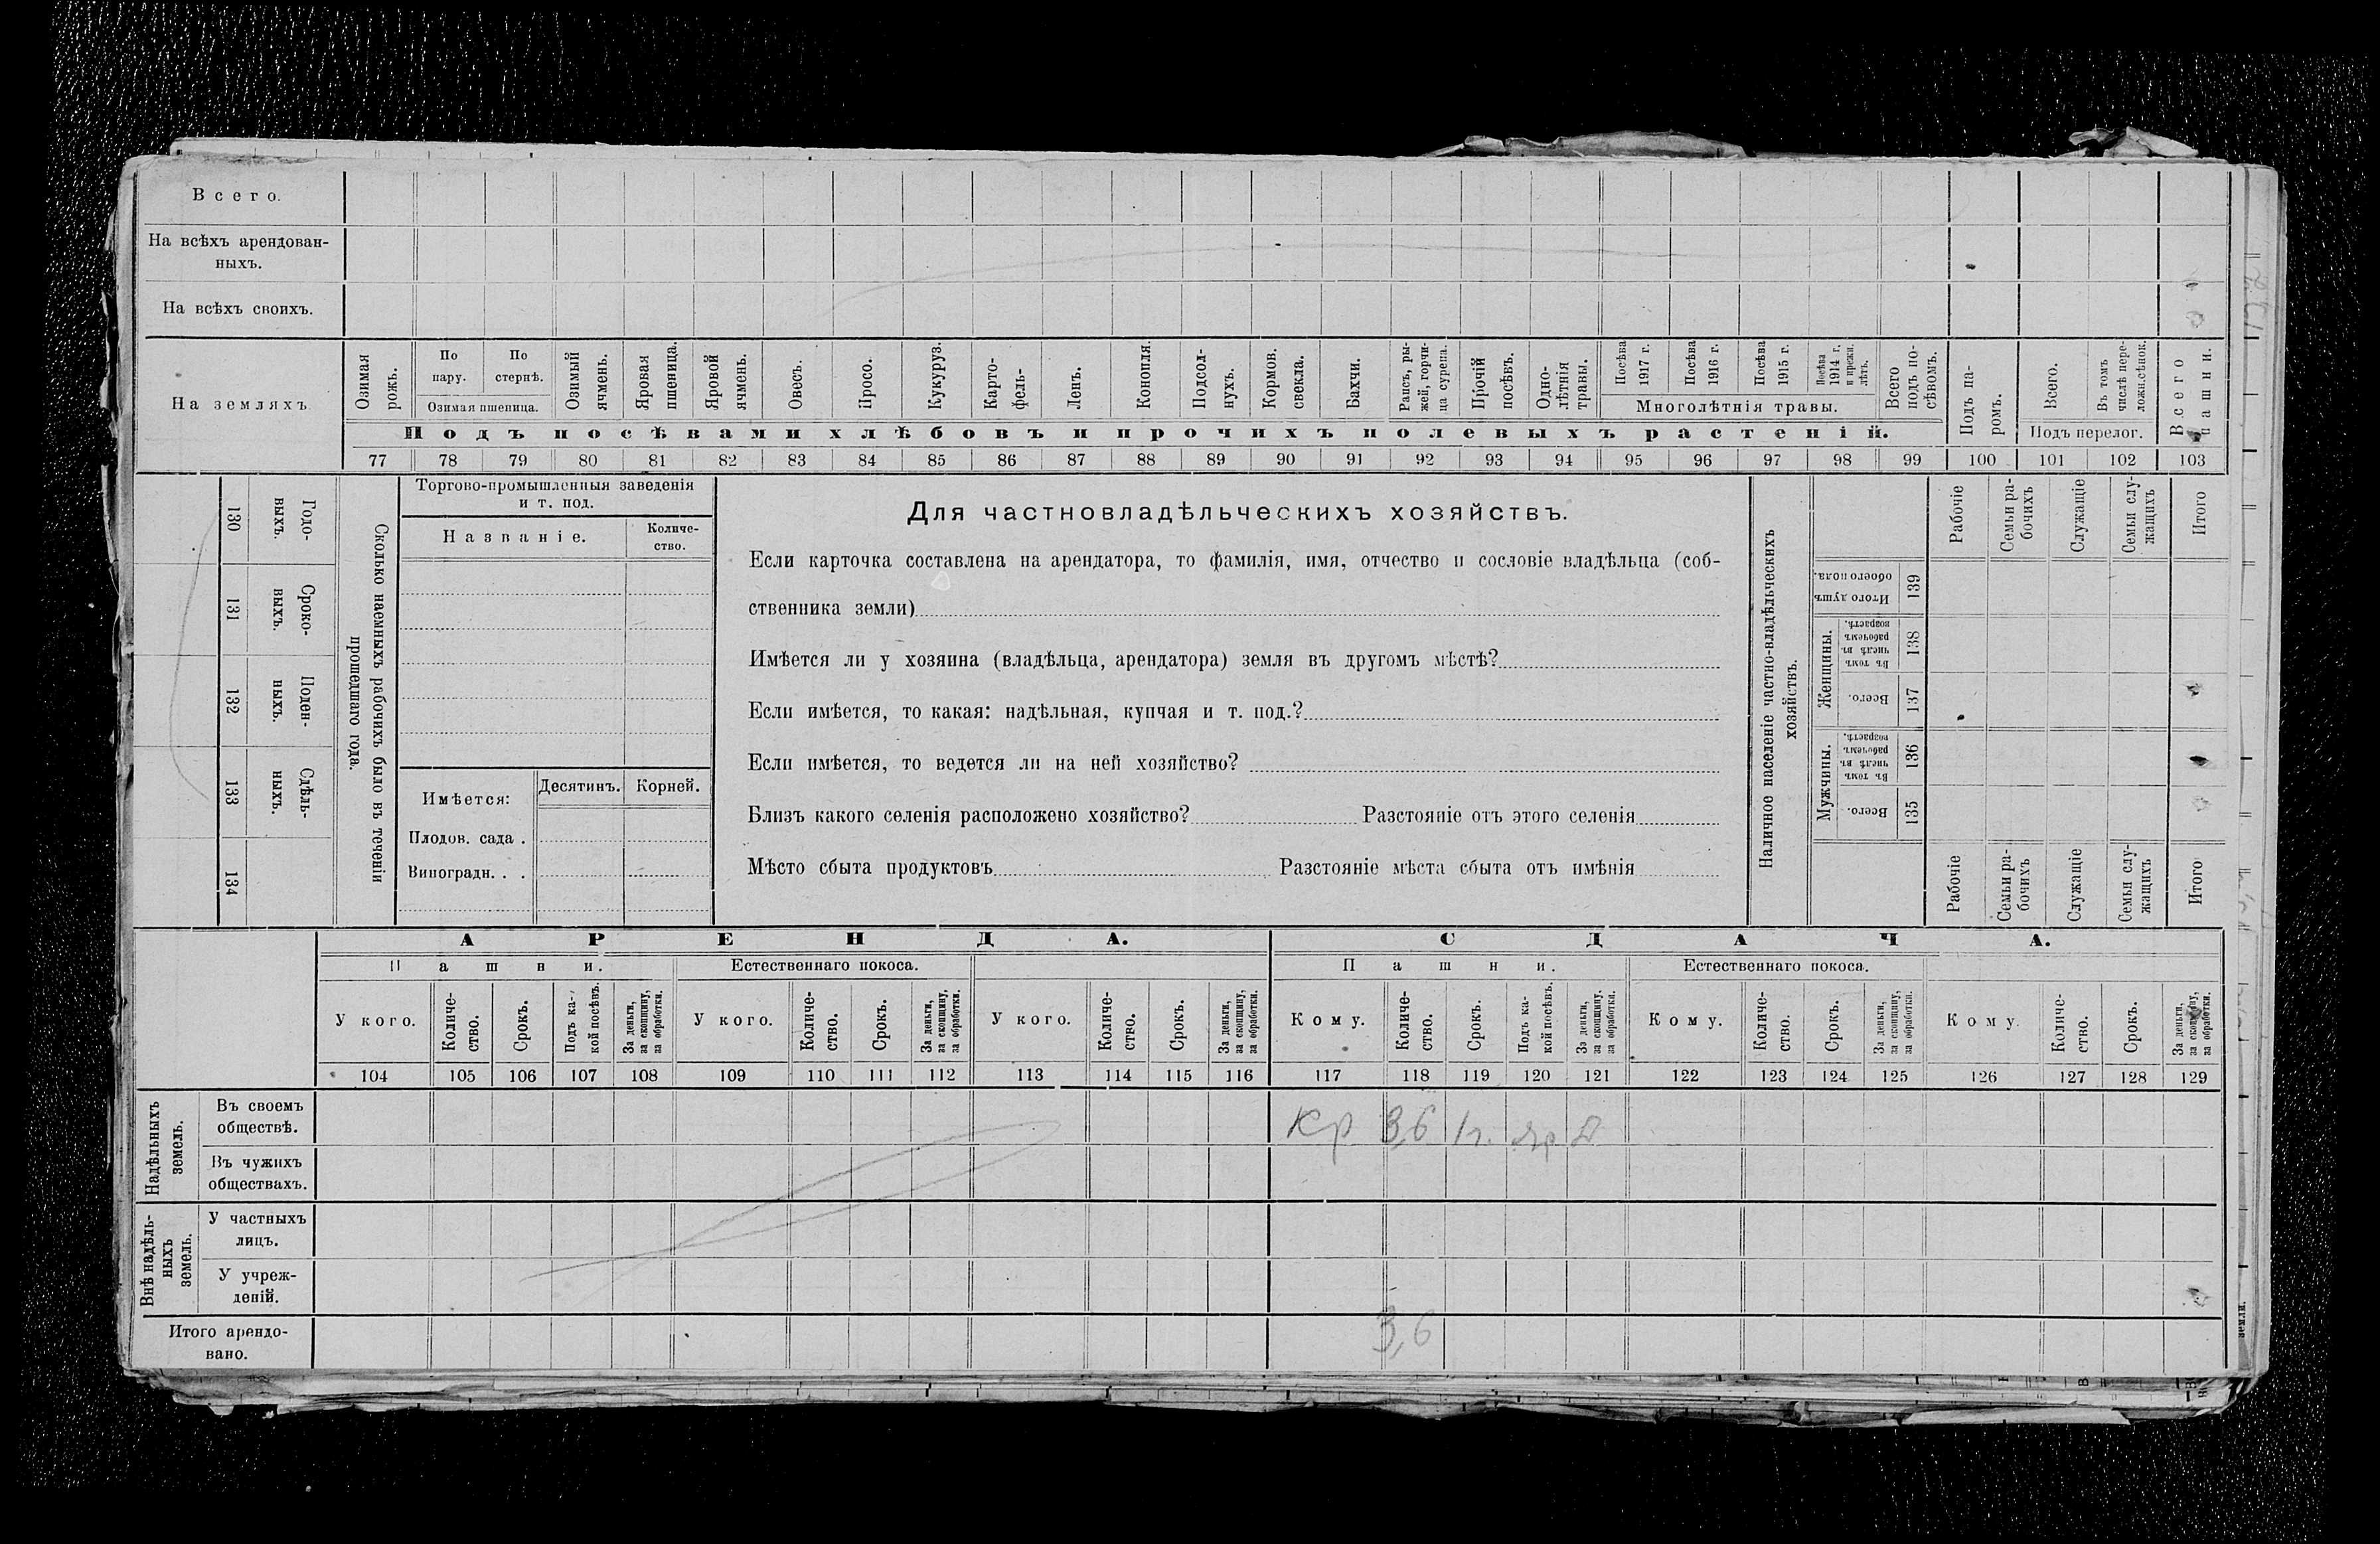 Всего.
На всѣхъ арендован-
ныхъ.
На всѣхъ своихъ.
На земляхъ
Озимая рожь.
По пару.
По стернѣ.
Озимая пшеница.
Озимый ячмень.
Яровая пшеница.
Яровой ячмень.
Овесъ.
Просо.
Кукуруз.
Карто-
фель-
Ленъ.
Конопля.
Подсол-
нухъ.
Кормов. свекла.
Бахчи.
Рапсъ, ры-
жей, горчи-
ца сурепа.
Прочій посѣвъ.
Одно-
лѣтнія травы.
Посѣва 1917 г.
Посѣва 1916 г.
Посѣва 1915 г.
Посѣва 1914 г. и прежн. лѣтъ.
Многолѣтнія травы.
Всего подъ по-
сѣвомъ.
Подъ па-
ромъ.
Всего.
Въ томъ числѣ пере-
ложн. сѣнок.
Подъ перелог.
Всего пашни.
Подъ посѣвами хлѣбовъ и прочихъ полевыхъ растеній.
77 78 79 80 81 82 83 84 85 86 87 88 89 90 91 92 93 94 95 96 97 98 99 100 101 102 103
130 Годо-
выхъ.
131 Сроко-
выхъ.
132 Поден-
ныхъ.
133 Сдѣль-
ныхъ.
134
Сколько наемныхъ рабочихъ было въ теченіи
прошедшаго года.
Торгово-промышленныя заведенія
и т. под.
Названіе.
Количе-
ство.
Имѣется:
Десятинъ.
Корней.
Плодов. сада .
Виноградн. . .
Для частновладѣльческихъ хозяйствъ.
Если карточка составлена на арендатора, то фамилія, имя, отчество и сословіе владѣльца (соб-
ственника земли)
Имѣется ли у хозяина (владѣльца, арендатора) земля въ другомъ мѣстѣ?
Если имѣется, то какая: надѣльная, купчая и т. под.?
Если имѣется, то ведется ли на ней хозяйство?
Близъ какого селенія расположено хозяйство? Разстояніе отъ этого селенія
Мѣсто сбыта продуктовъ Разстояніе мѣста сбыта отъ имѣнія
Наличное населеніе частно-владѣльческихъ
хозяйствъ.
Рабочіе
Семьи ра-
бочихъ
Служащіе
Семьи слу-
жащихъ
Итого
Итого душъ обоего пола.
139
Женщины.
Въ томъ числѣ въ рабочемъ возрастѣ.
138
Всего.
137
Мужчины.
Въ томъ числѣ въ рабочемъ возрастѣ.
136
Всего.
135
Рабочіе
Семьи ра-
бочихъ
Служащіе
Семьи слу-
жащихъ
Итого
АРЕНДА.
СДАЧА.
Пашни.
Естественнаго покоса.
Пашни.
Естественнаго покоса.
У кого.
Количе-
ство.
Срокъ.
Подъ ка-
кой посѣвъ.
За деньги, за скопщину, за обработки.
У кого.
Количе-
ство.
Срокъ.
За деньги, за скопщину, за обработки.
У кого.
Количе-
ство.
Срокъ.
За деньги, за скопщину, за обработки.
Кому.
Количе-
ство.
Срокъ.
Подъ ка-
кой посѣвъ.
За деньги, за скопщину, за обработки.
Кому.
Количе-
ство.
Срокъ.
За деньги, за скопщину, за обработки.
Кому.
Количе-
ство.
Срокъ.
За деньги, за скопщину, за обработки.
104 105 106 107 108 109 110 111 112 113 114 115 116 117 118 119 120 121 122 123 124 125 126 127 128 129
Надѣльныхъ
земель.
Въ своемъ
обществѣ.
Кр 3,6 1г. яр Д
Въ чужихъ
обществахъ.
Внѣ надѣль-
ныхъ
земель.
У частныхъ
лицъ.
У учреж-
деній.
Итого арендо-
вано.
3,6
земли.